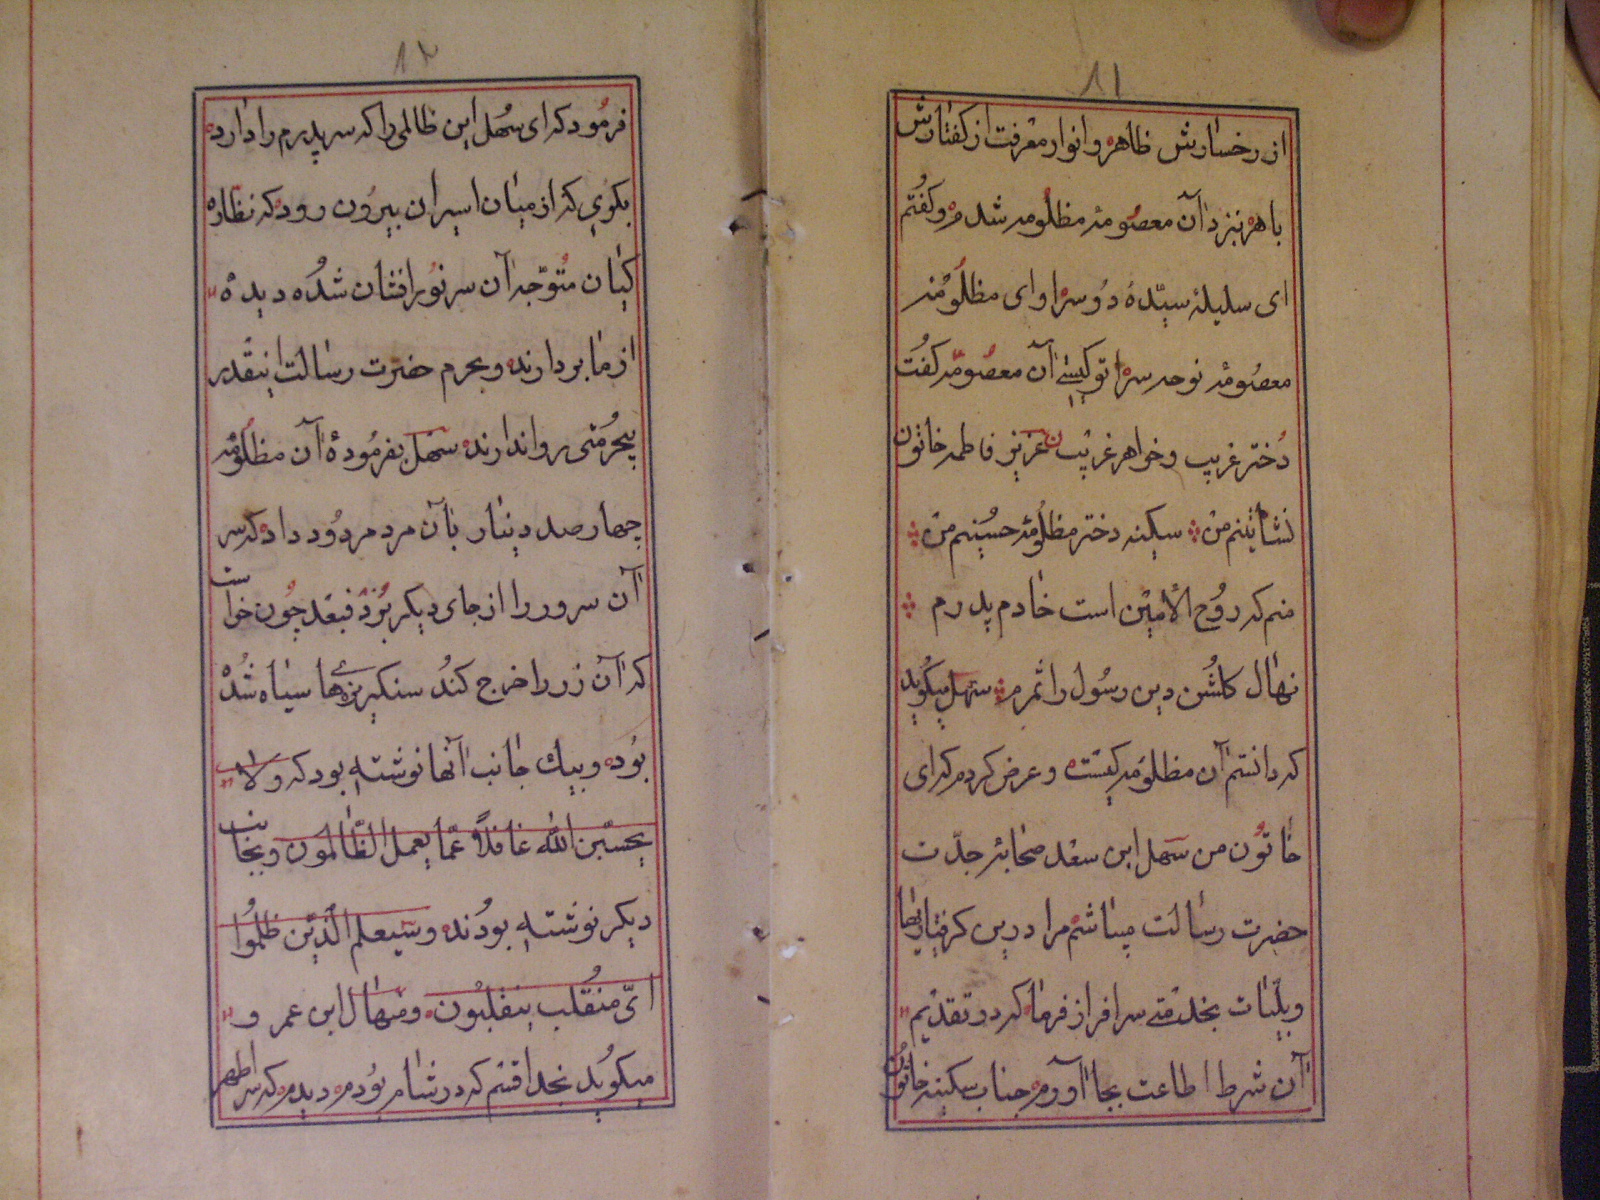 ۸۱
از رخسارش ظاهر و انوار معرفت از کفتارش
باهر بنزد آن معصومهٔ مظلومه شدم و کفتم
ای سلیلهٔ سیّدهٔ دوسرا و ای مظلومهٔ
معصومهٔ نوحه سرا تو کیستی آن معصومه کفت
دُختر غریب و خواهر غریبن عزیز فاطمه خاتون
نشاتینم من سکینه دختر مظلومهٔ حسینم من
منم که رُوح الامین است خادم پدرم
نهال کلشن دین رسُول را ثمرم سهل میکوید
که دانستم آن مظلومه کیست و عرض کردم که ای
خاتُون من سهل ابن سعد صحابهٔ جدّت
حضرت رسالت میباشم مرا درین کرفتاریها
و بلیّات بخدمتی سرافراز فرما که در تقدیم
آن شرط اطاعت بجا آورم جناب سکینه خاتُون
۸۲
فرمُود که ای سهل این ظالمی را که سر پدرم را دارد
بکوی که از میان اسیران بیرُون رود که نظاره
کیان متوّجه آن سر نُور افشان شُده دیده
از ما بردارند و بحرم حضرت رسالت اینقدر
بیحُرمتی روا ندارند سهل بفرمُودهٔ آن مظلومه
چهار صد دینار بآن مرد مردُود داد که سر
آن سرور را از جای دیکر بُرد فبعد چُون خواست
که آن زر را خرج کند سنکریزها سیاه شُد
بُود و بیک جانب آنها نوشته بود که ولا
یحسبن الله غافلاً عمّا یعمل الظّالمون و بجانب
دیکر نوشته بودند و سیعلم الّذین ظلمُوا
ایّ منقلب ینقلبُون و منهال ابن عمر و
میکوید بخدا قسم که در شام بُودم دیدم که سر اطهر